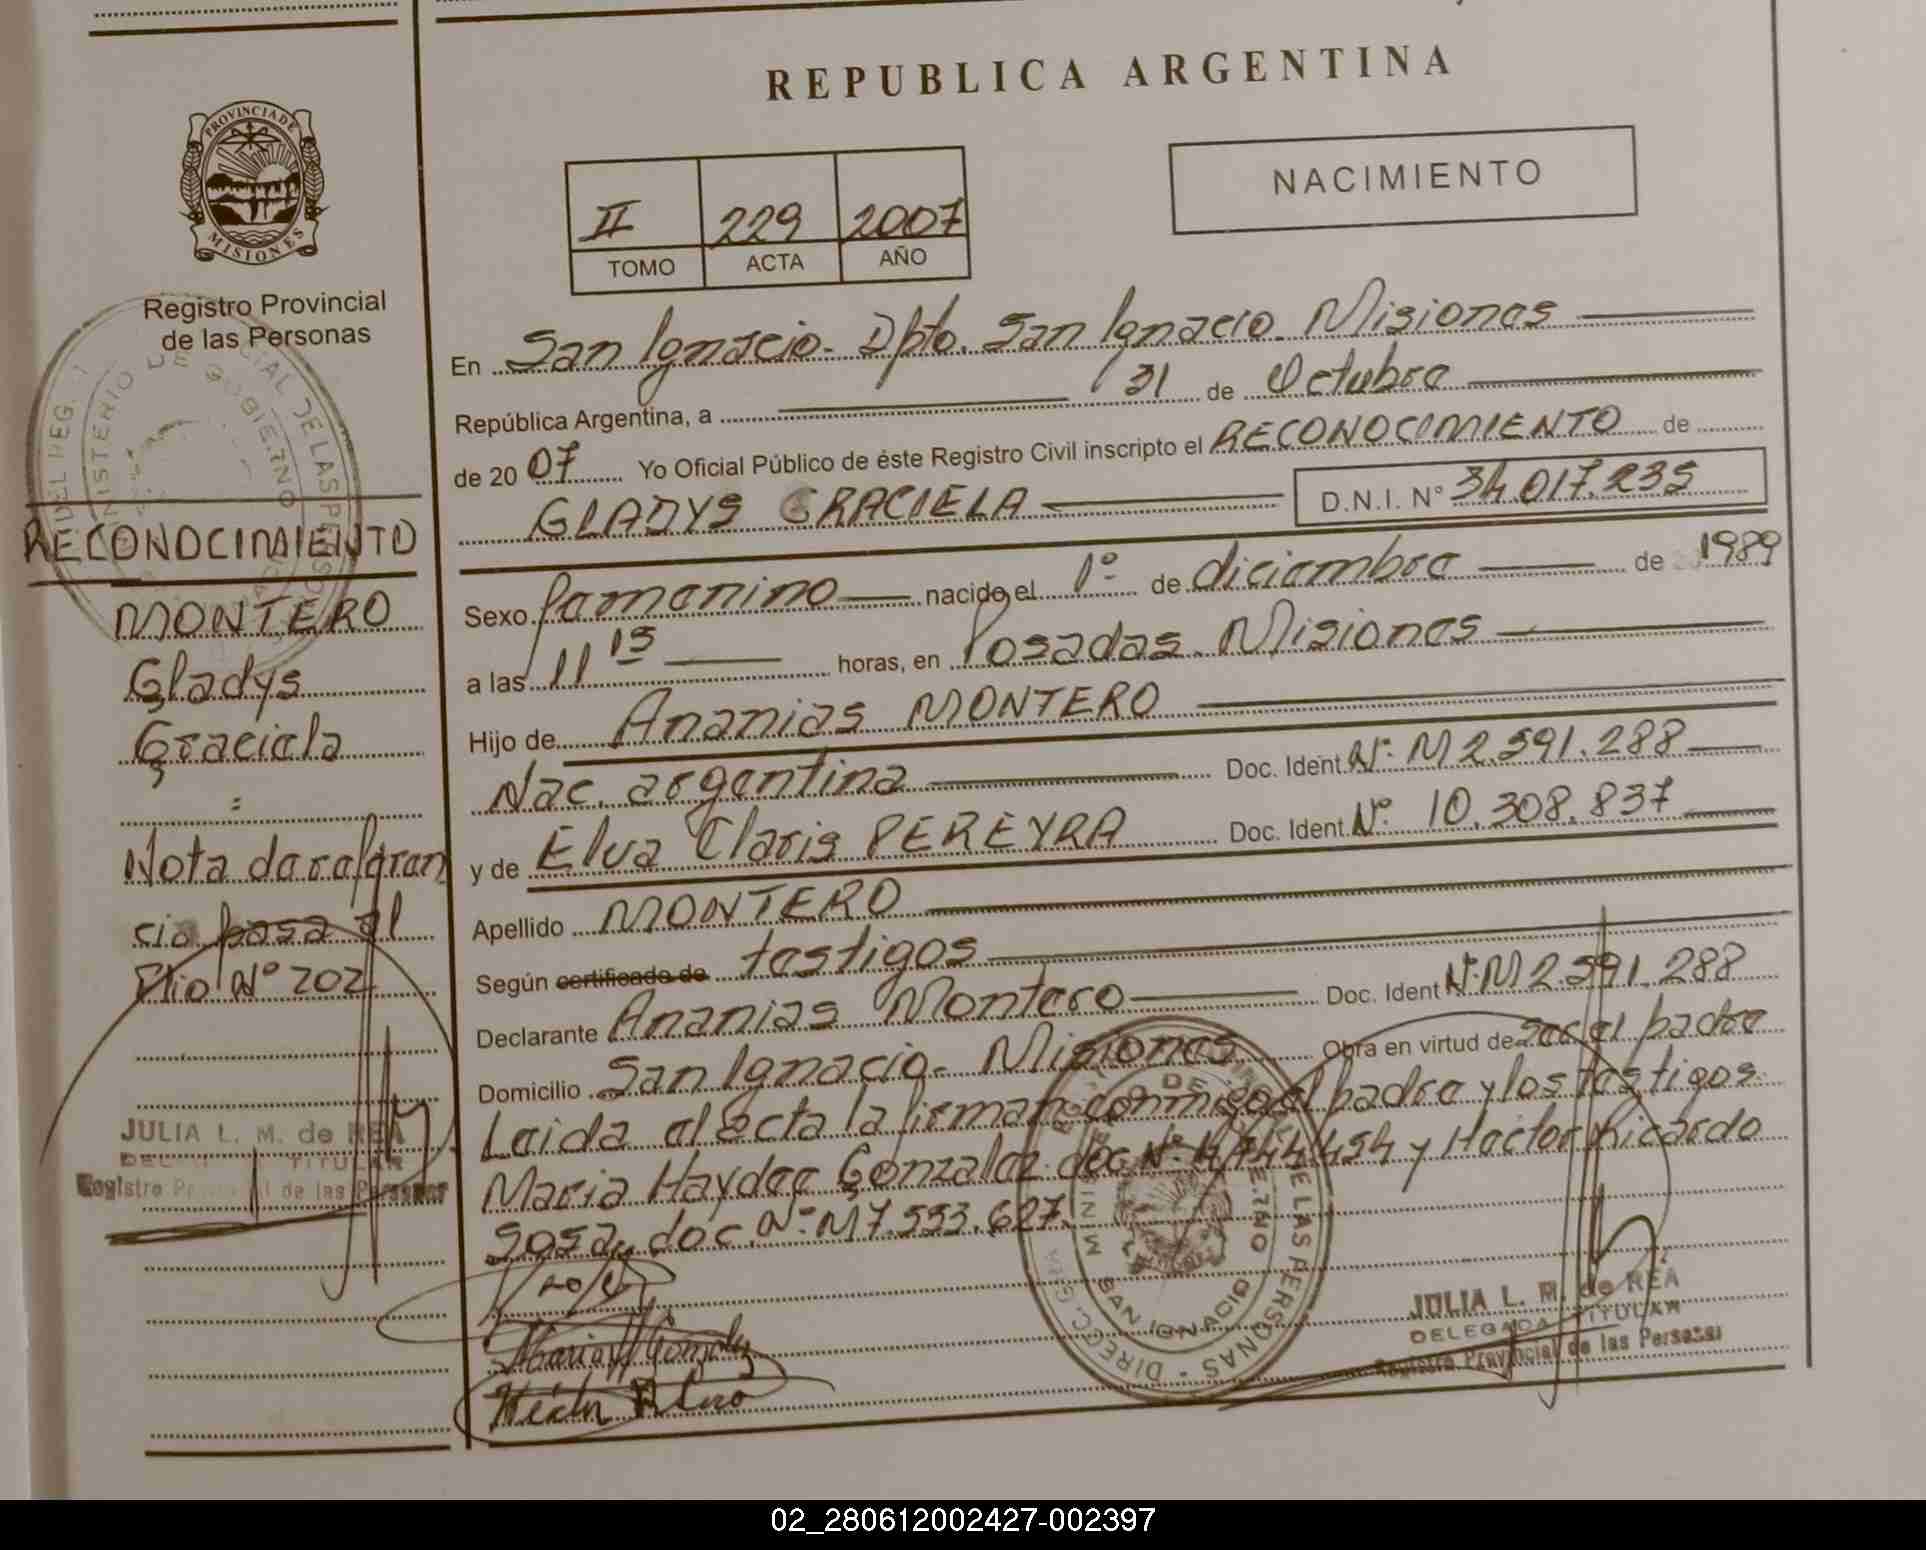 REPUBLICA ARGENTINA
PROVINCIA DE
MISIONES
Registro Provincial
de las Personas
NACIMIENTO
II 229 2007
TOMO ACTA AÑO
En San Ignacio - Dpto. San Ignacio - Misiones
República Argentina, a 31 de Octubre
de 2007 Yo Oficial Público de éste Registro Civil inscripto el RECONOCIMIENTO de
GLADYS GRACIELA D.N.I. N° 34.017.235
Sexo femenino nacido el 1° de diciembre de 1989
a las 11 15 horas, en Posadas - Misiones
Hijo de Ananias MONTERO
Nac. argentina Doc. Ident. N° M 2.591.288
y de Elva Claris PEREYRA Doc. Ident. N° 10.308.837
Apellido MONTERO
Según certificado de testigos
Declarante Ananias Montero Doc. Ident N° M 2.591.288
Domicilio San Ignacio - Misiones Obra en virtud de ser el padre
Leida el acta la firman conmigo el padre y los testigos
Maria Haydee Gonzalez doc. N° 4.744.454 y Hector Ricardo
Sosa, doc. N° M 7.553.627.
JULIA L. M. de REA
DELEGADA TITULAR
Registro Provincial de las Personas
SAN IGNACIO
RECONOCIMIENTO
MONTERO
Gladys
Graciela
Nota de referen
cia pasa al
Flio N° 202
JULIA L. M. de REA
TITULAR
Registro Provincial de las Personas
02_280612002427-002397